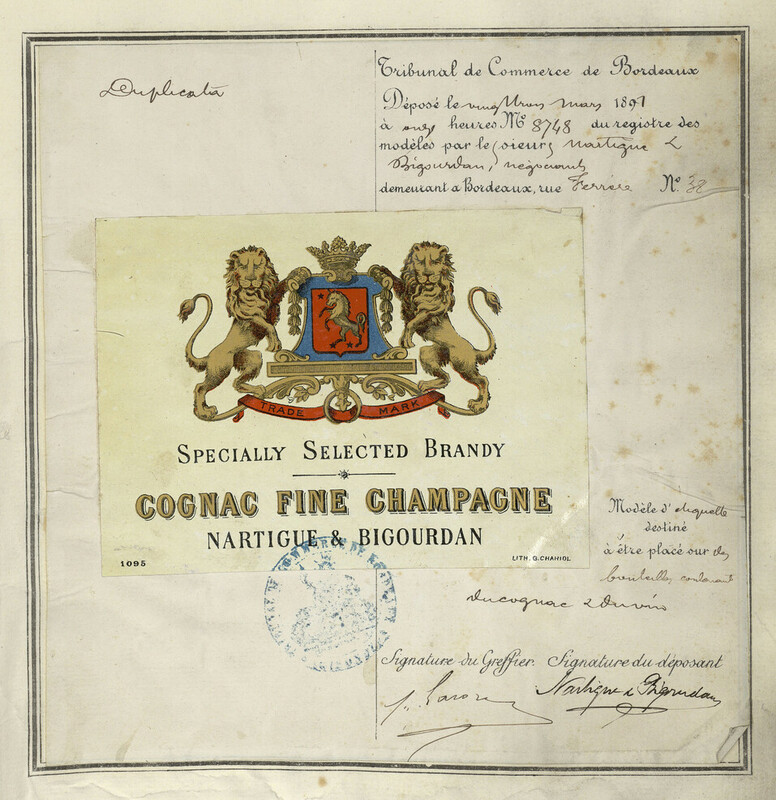 Duplicata
Tribunal de Commerce de Bordeaux
Déposé le vingt trois mars 1891
à onze heures No 8748 du registre des
modèles par le sieurs Nartigue &
Bigourdan, négociants
demeurant a Bordeaux, rue Ferrère No. 38
TRADE MARK
SPECIALLY SELECTED BRANDY
COGNAC FINE CHAMPAGNE
NARTIGUE & BIGOURDAN
1095
LITH. G. CHARIOL
Modèle d'etiquette
destiné
à être placé sur des
bouteilles contenant
du cognac & du vin
Signature du Greffier. Signature du déposant
Nartigue & Bigourdan